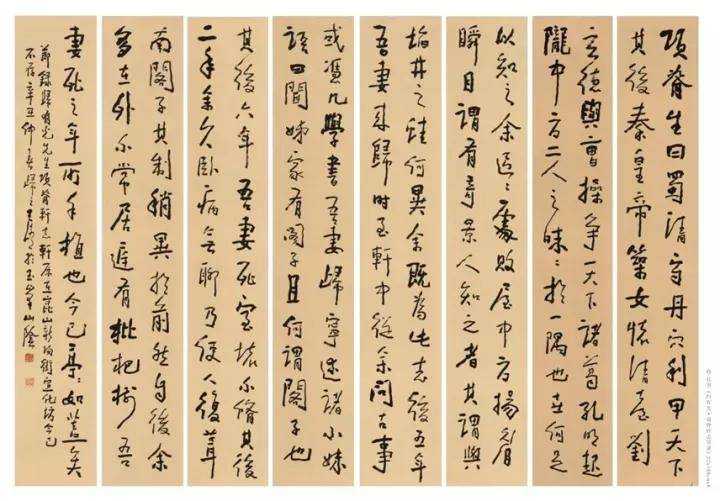 項脊生曰蜀清守丹穴利甲天下
其後秦皇帝築女懷清臺劉
玄德與曹操爭天下諸葛孔明起
隴中方二人之昧々於一隅也世何足
以知之余區々處敗屋中方揚眉
瞬目謂有奇景人知之者其謂與
埳井之蛙何異余既為此志後五年
吾妻來歸時至軒中從余問古事
或憑几學書吾妻歸寧述諸小妹
語曰聞姊家有閣子且何謂閣子也
其後六年吾妻死室壞不修其後
二年余久臥病無聊乃使人復葺
南閣子其制稍異於前然自後余
多在外不常居庭有枇杷樹吾
妻死之年所手植也今已亭々如蓋矣
節錄歸有光先生項脊軒志軒原在崑山新陽街宣化坊今已
不存辛丑仲春歸之於玉峯山陰